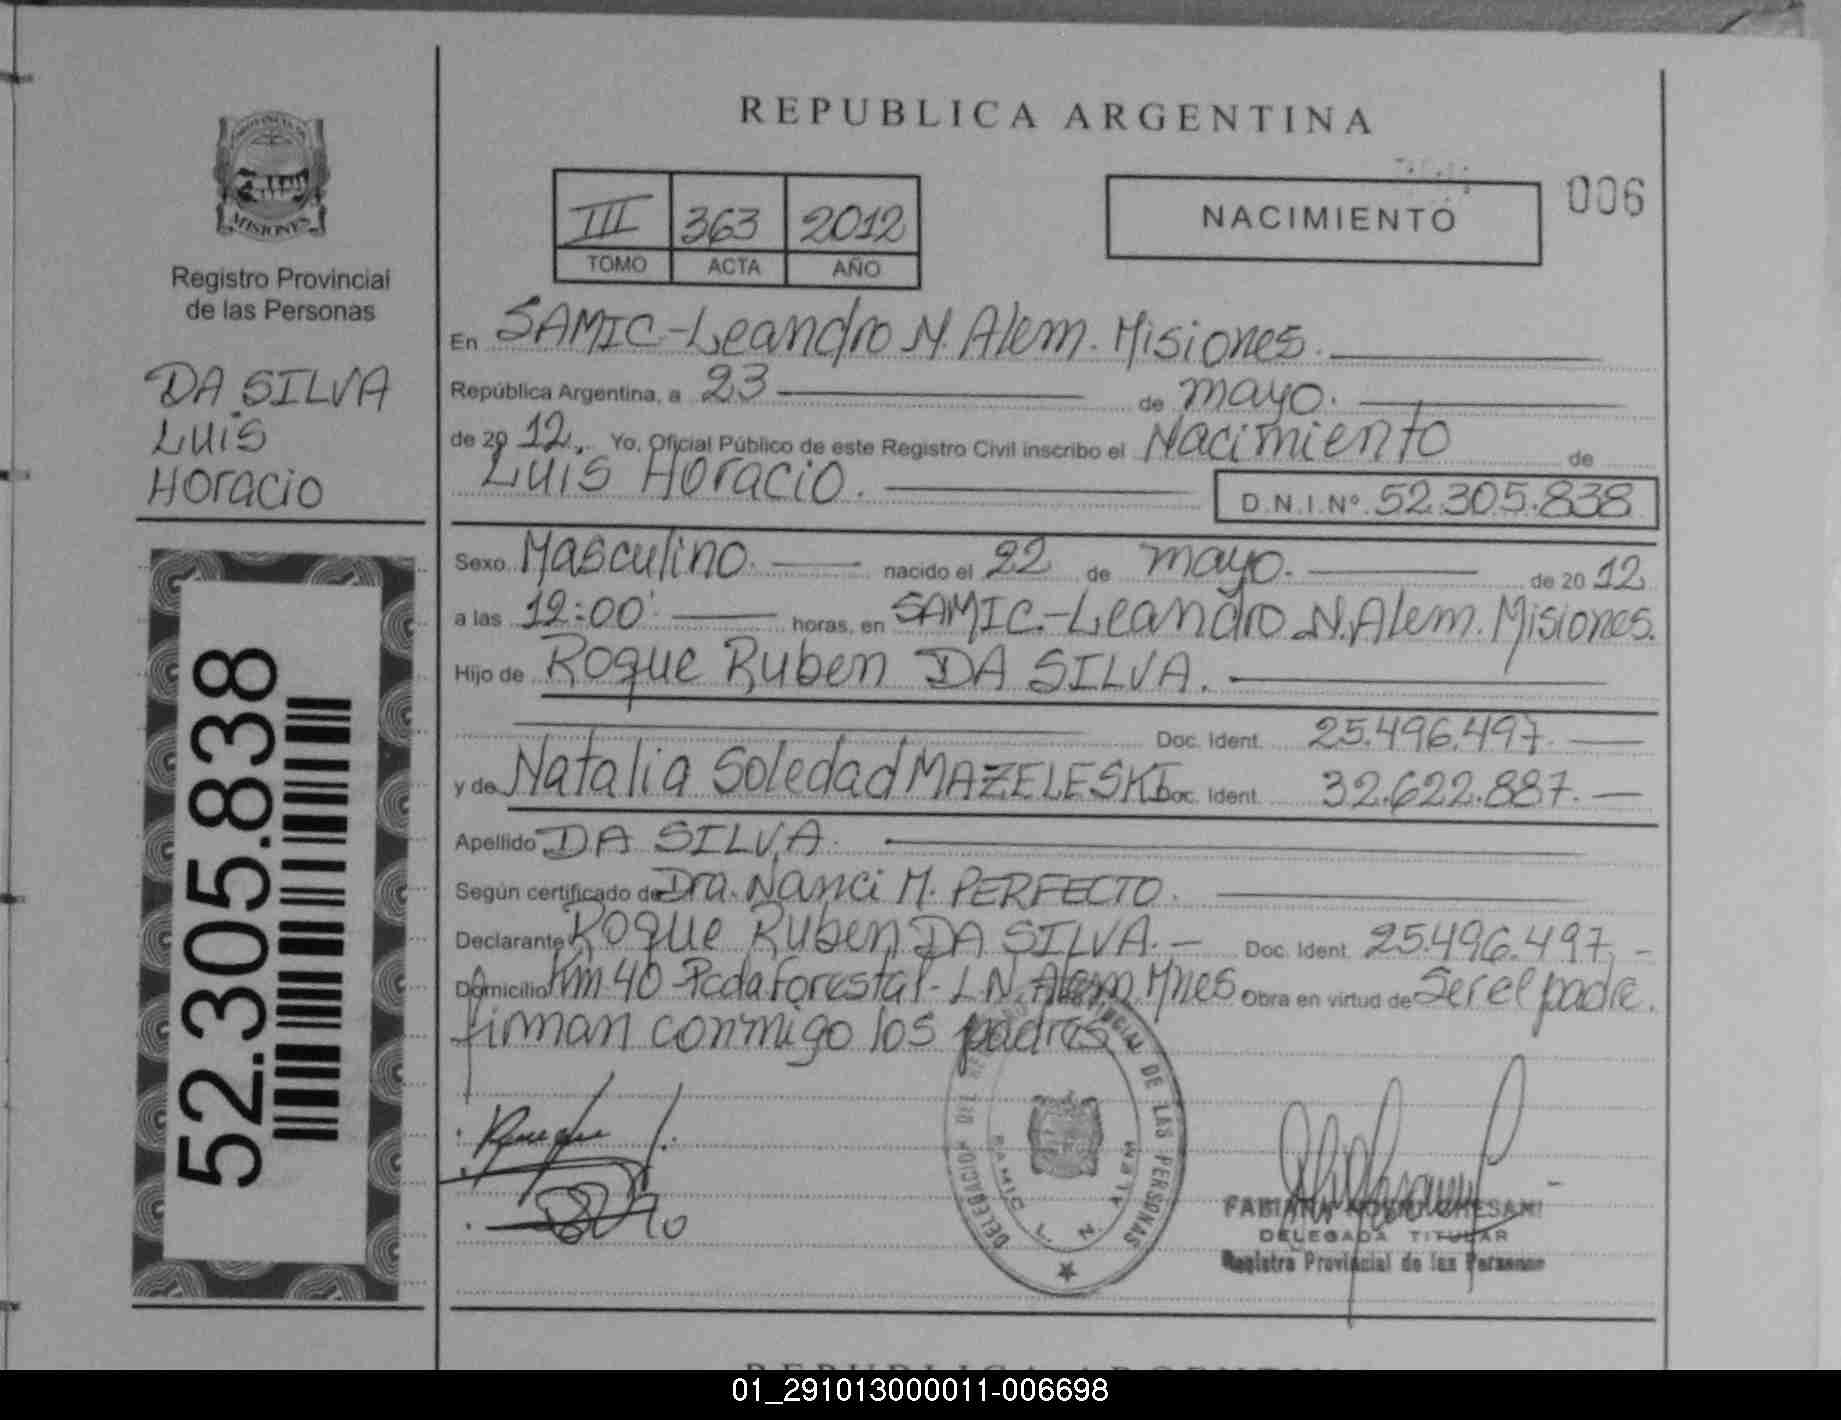 REPUBLICA ARGENTINA
PROVINCIA DE
MISIONES
Registro Provincial
de las Personas
DA SILVA
LUIS
HORACIO
52.305.838
III 363 2012
TOMO ACTA AÑO
NACIMIENTO
006
En SAMIC-Leandro N. Alem. Misiones.
República Argentina, a 23 de mayo.
de 2012. Yo, Oficial Público de este Registro Civil inscribo el Nacimiento de
LUIS HORACIO.
D.N.I.Nº 52.305.838
Sexo Masculino. nacido el 22 de mayo. de 2012
a las 12:00' horas, en SAMIC.-Leandro N. Alem. Misiones.
Hijo de Roque Ruben DA SILVA.
Doc. Ident. 25.496.497.
y de Natalia Soledad MAZELESKI Doc. Ident. 32.622.887.
Apellido DA SILVA.
Según certificado de Dra. Nanci M. PERFECTO.
Declarante Roque Ruben DA SILVA. - Doc. Ident. 25.496.497. -
Domicilio Km 40 Pcda forestal - L N. Alem Mnes Obra en virtud de Ser el padre.
firman conmigo los padres
DELEGACION REGISTRO PROVINCIAL DE LAS PERSONAS
SAMIC L. N. ALEM
DELEGADA TITULAR
Registro Provincial de las Personas
REPUBLICA ARGENTINA
01_291013000011-006698